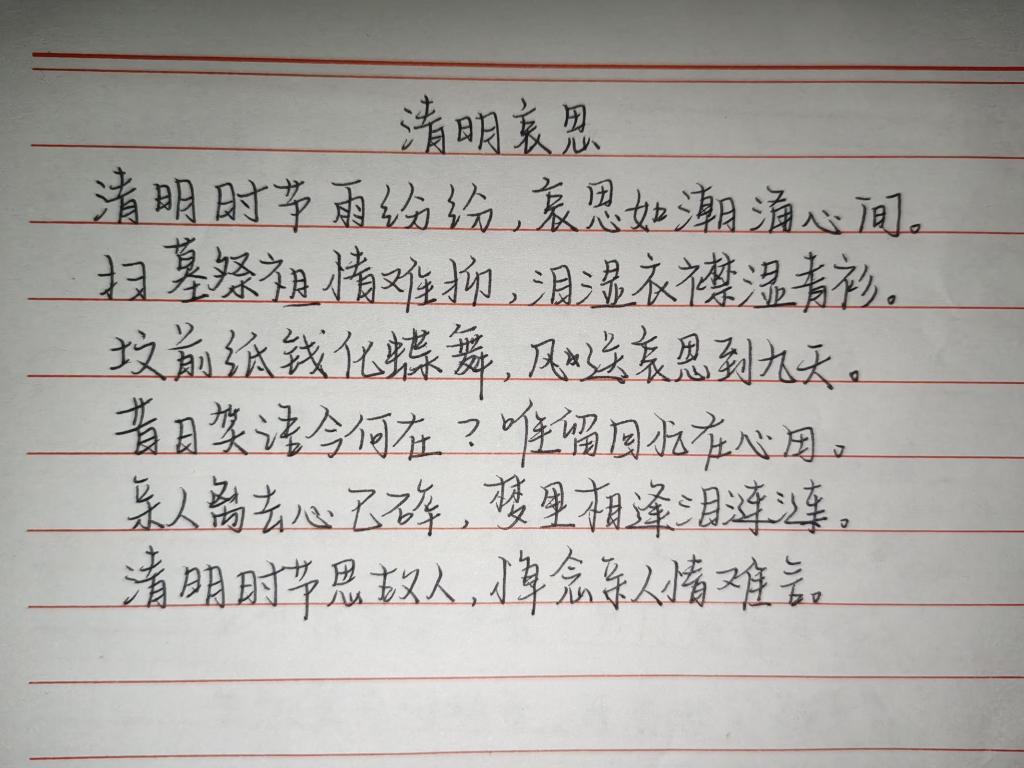 清明哀思
清明时节雨纷纷，哀思如潮涌心间。
扫墓祭祖情难抑，泪湿衣襟湿青衫。
坟前纸钱化蝶舞，风送哀思到九天。
昔日笑语今何在？唯留回忆在心田。
亲人离去心已碎，梦里相逢泪涟涟。
清明时节思故人，悼念亲人情难言。